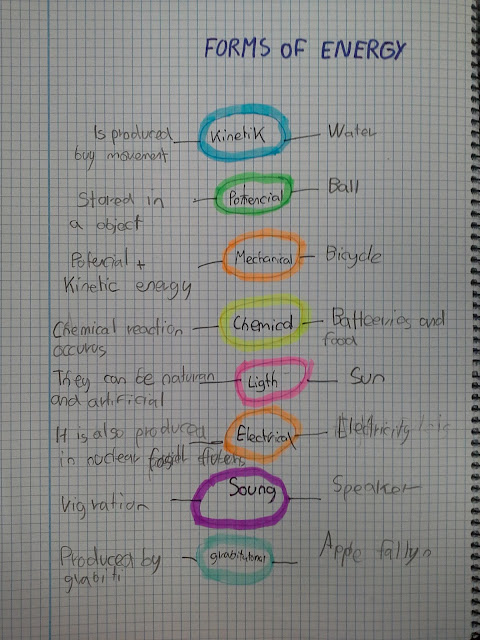 FORMS OF ENERGY
Is produced Kinetik Water
buy movement
Stored in Potencial Ball
a object
Potencial + Mechanical Bicycle
Kinetic energy
Chemical reaction Chemical Battceries and
occurus food
They can be naturan Ligth Sun
and artificial
It is also produced Electrical Electricity
in nuclear
Vigration Soung Speaker
Produced by grabitutional Apple fallyn
grabiti